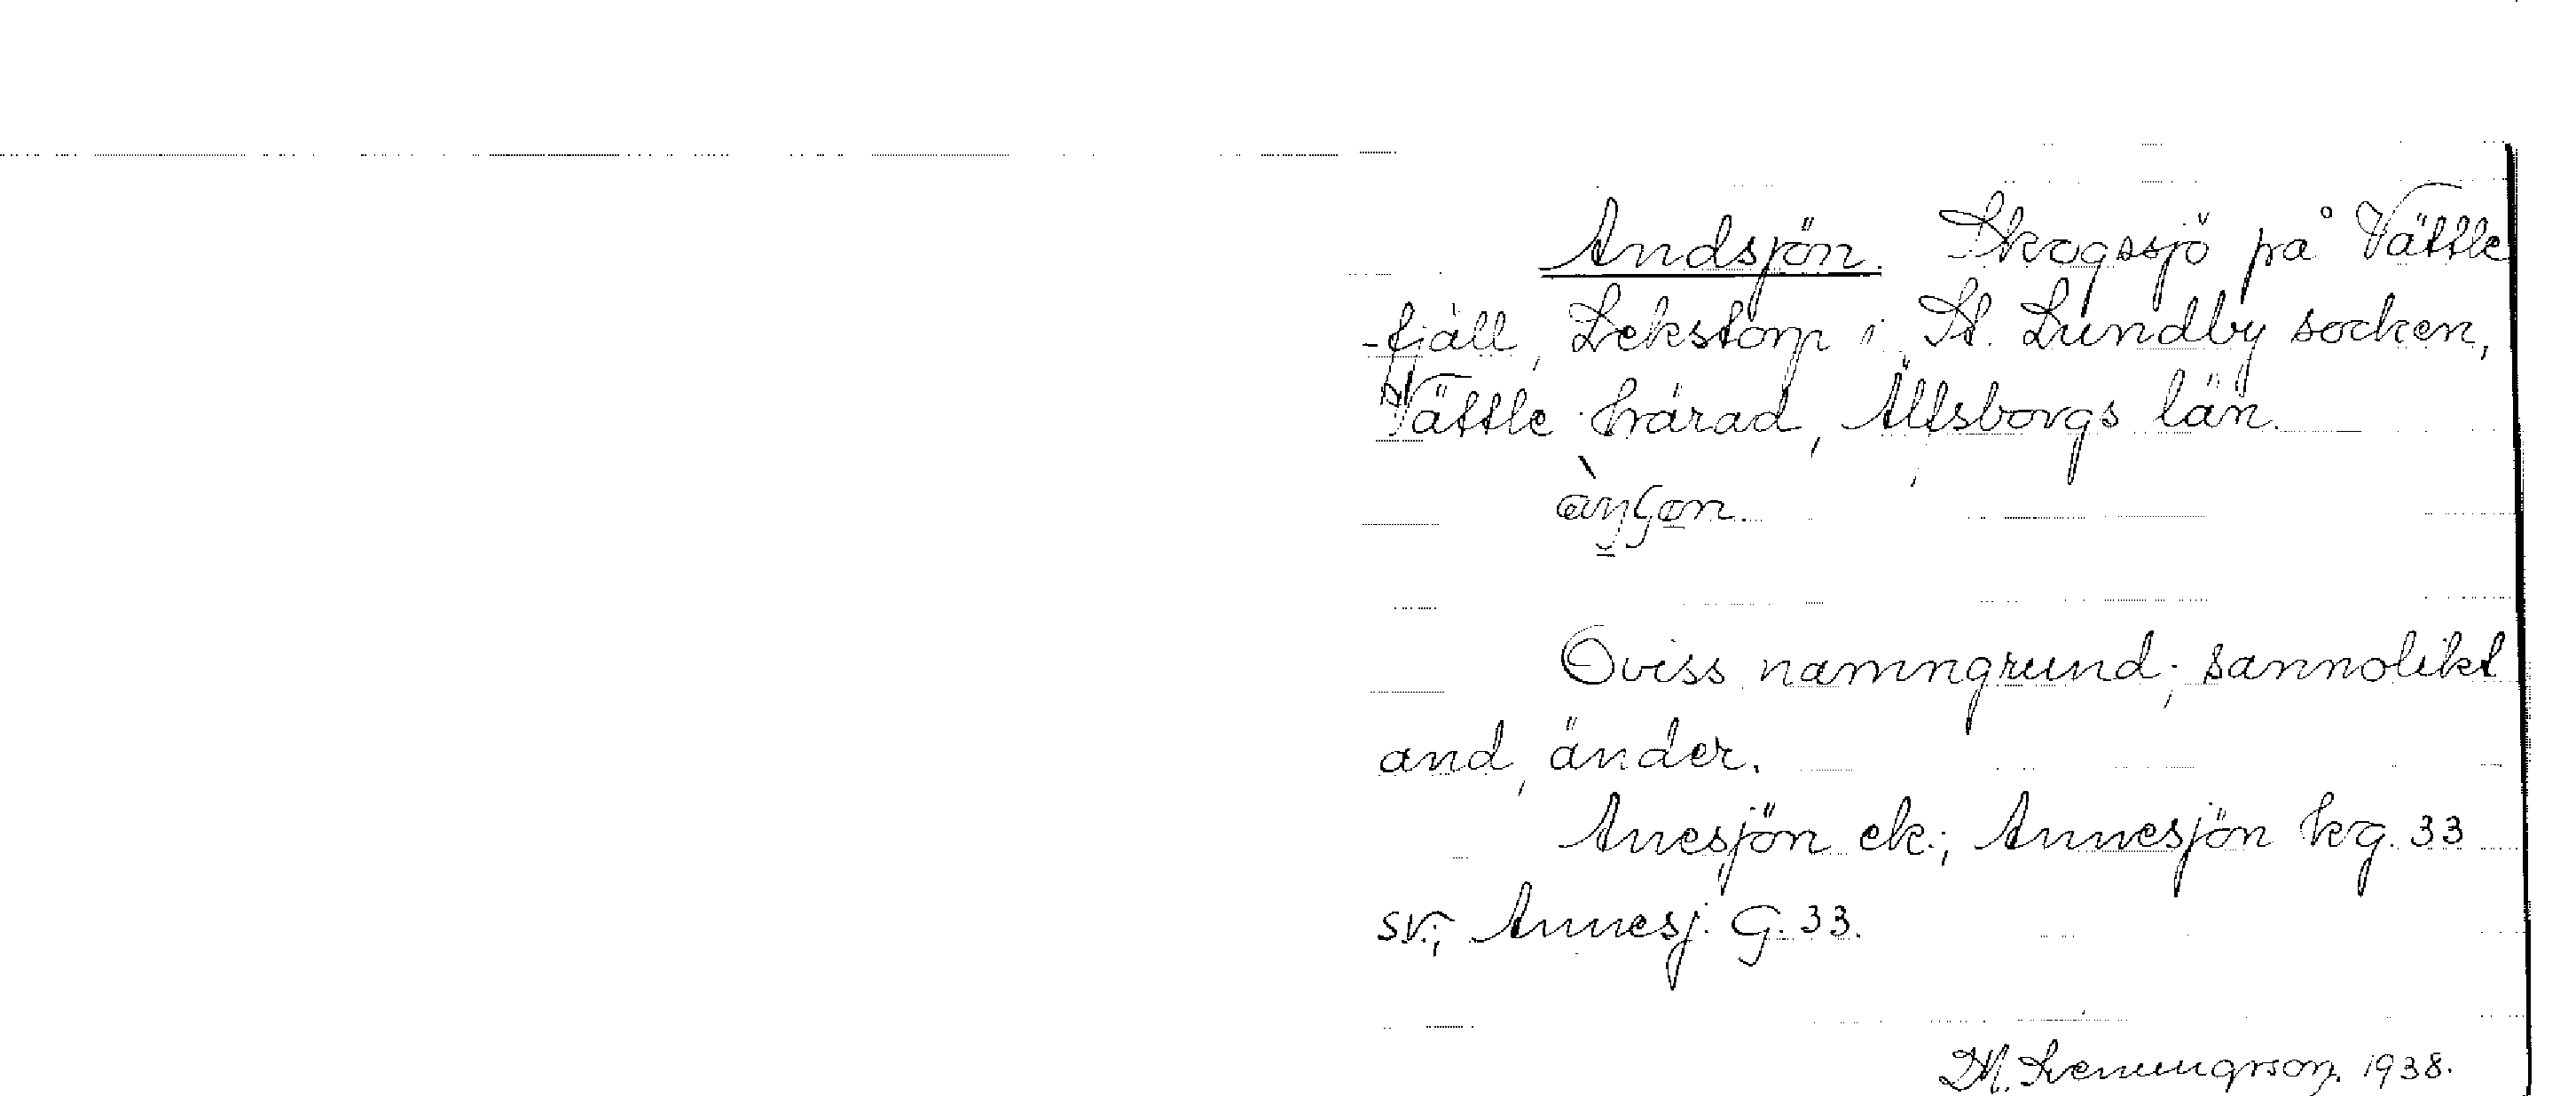 Andsjön. Skogssjö på Vättle
-fjäll, Lekstorp i St. Lundby socken,
Vättle härad, Älfsborgs län.
Oviss namngrund; sannolikt
and, änder.
Anesjön ek.; Annesjön kg. 33
sv.; Annesj. G. 33.
1938.